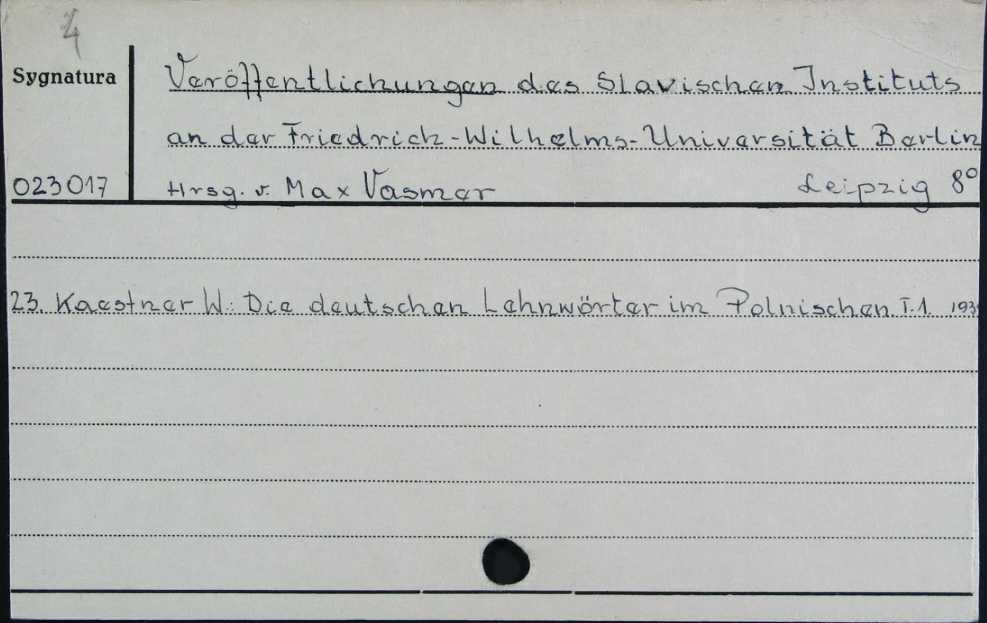 4
Sygnatura
Veröffentlichungen des Slavischen Instituts
an der Friedrich-Wilhelms-Universität Berlin
023017 Hrsg. v. Max Vasmer Leipzig 8°
23. Kaestner W.: Die deutschen Lehnwörter im Polnischen. T.1.